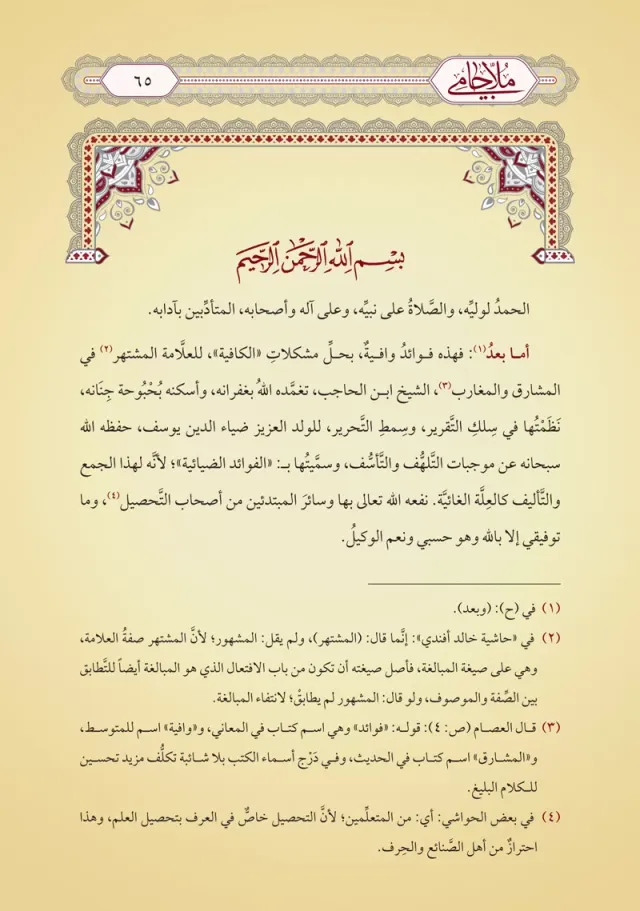 ملا جامي
٦٥
بسم الله الرحمن الرحيم
الحمدُ لوليِّه، والصَّلاةُ على نبيِّه، وعلى آله وأصحابه، المتأدِّبين بآدابه.
أما بعدُ(١): فهذه فوائدُ وافيةٌ، بحلِّ مشكلاتِ «الكافية»، للعلَّامة المشتهر(٢) في
المشارق والمغارب(٣)، الشيخ ابن الحاجب، تغمَّده اللهُ بغفرانه، وأسكنه بُحْبُوحة جِنَانه،
نَظَمْتُها في سِلكِ التَّقرير، وسِمطِ التَّحرير، للولد العزيز ضياء الدين يوسف، حفظه الله
سبحانه عن موجبات التَّلهُّف والتَّأسُّف، وسمَّيتُها بـ: «الفوائد الضيائية»؛ لأنَّه لهذا الجمع
والتَّأليف كالعِلَّة الغائيَّة. نفعه الله تعالى بها وسائرَ المبتدئين من أصحاب التَّحصيل(٤)، وما
توفيقي إلا بالله وهو حسبي ونعم الوكيلُ.
(١) في (ح): (وبعد).
(٢) في «حاشية خالد أفندي»: إنَّما قال: (المشتهر)، ولم يقل: المشهور؛ لأنَّ المشتهر صفةُ العلامة،
وهي على صيغة المبالغة، فأصل صيغته أن تكون من باب الافتعال الذي هو المبالغة أيضاً للتَّطابق
بين الصِّفة والموصوف، ولو قال: المشهور لم يطابقْ؛ لانتفاء المبالغة.
(٣) قال العصام (ص: ٤): قوله: «فوائد» وهي اسم كتاب في المعاني، و«وافية» اسم للمتوسط،
و«المشارق» اسم كتاب في الحديث، وفي دَرْج أسماء الكتب بلا شائبة تكلُّف مزيد تحسين
للكلام البليغ.
(٤) في بعض الحواشي: أي: من المتعلِّمين؛ لأنَّ التحصيل خاصٌّ في العرف بتحصيل العلم، وهذا
احترازٌ من أهل الصَّنائع والحِرف.